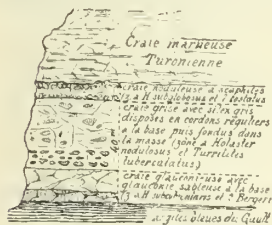 Craie marneuse
Turonienne
craie noduleuse à scaphites
à H subglobosus et costatus
craie grise avec silex gris
disposés en cordons réguliers
à la base puis fondus dans
la masse (zône à Holaster
nodulosus et Turrilites
tuberculatus)
craie glauconieuse avec
glauconie sableuse à la base
argiles bleues du Gault